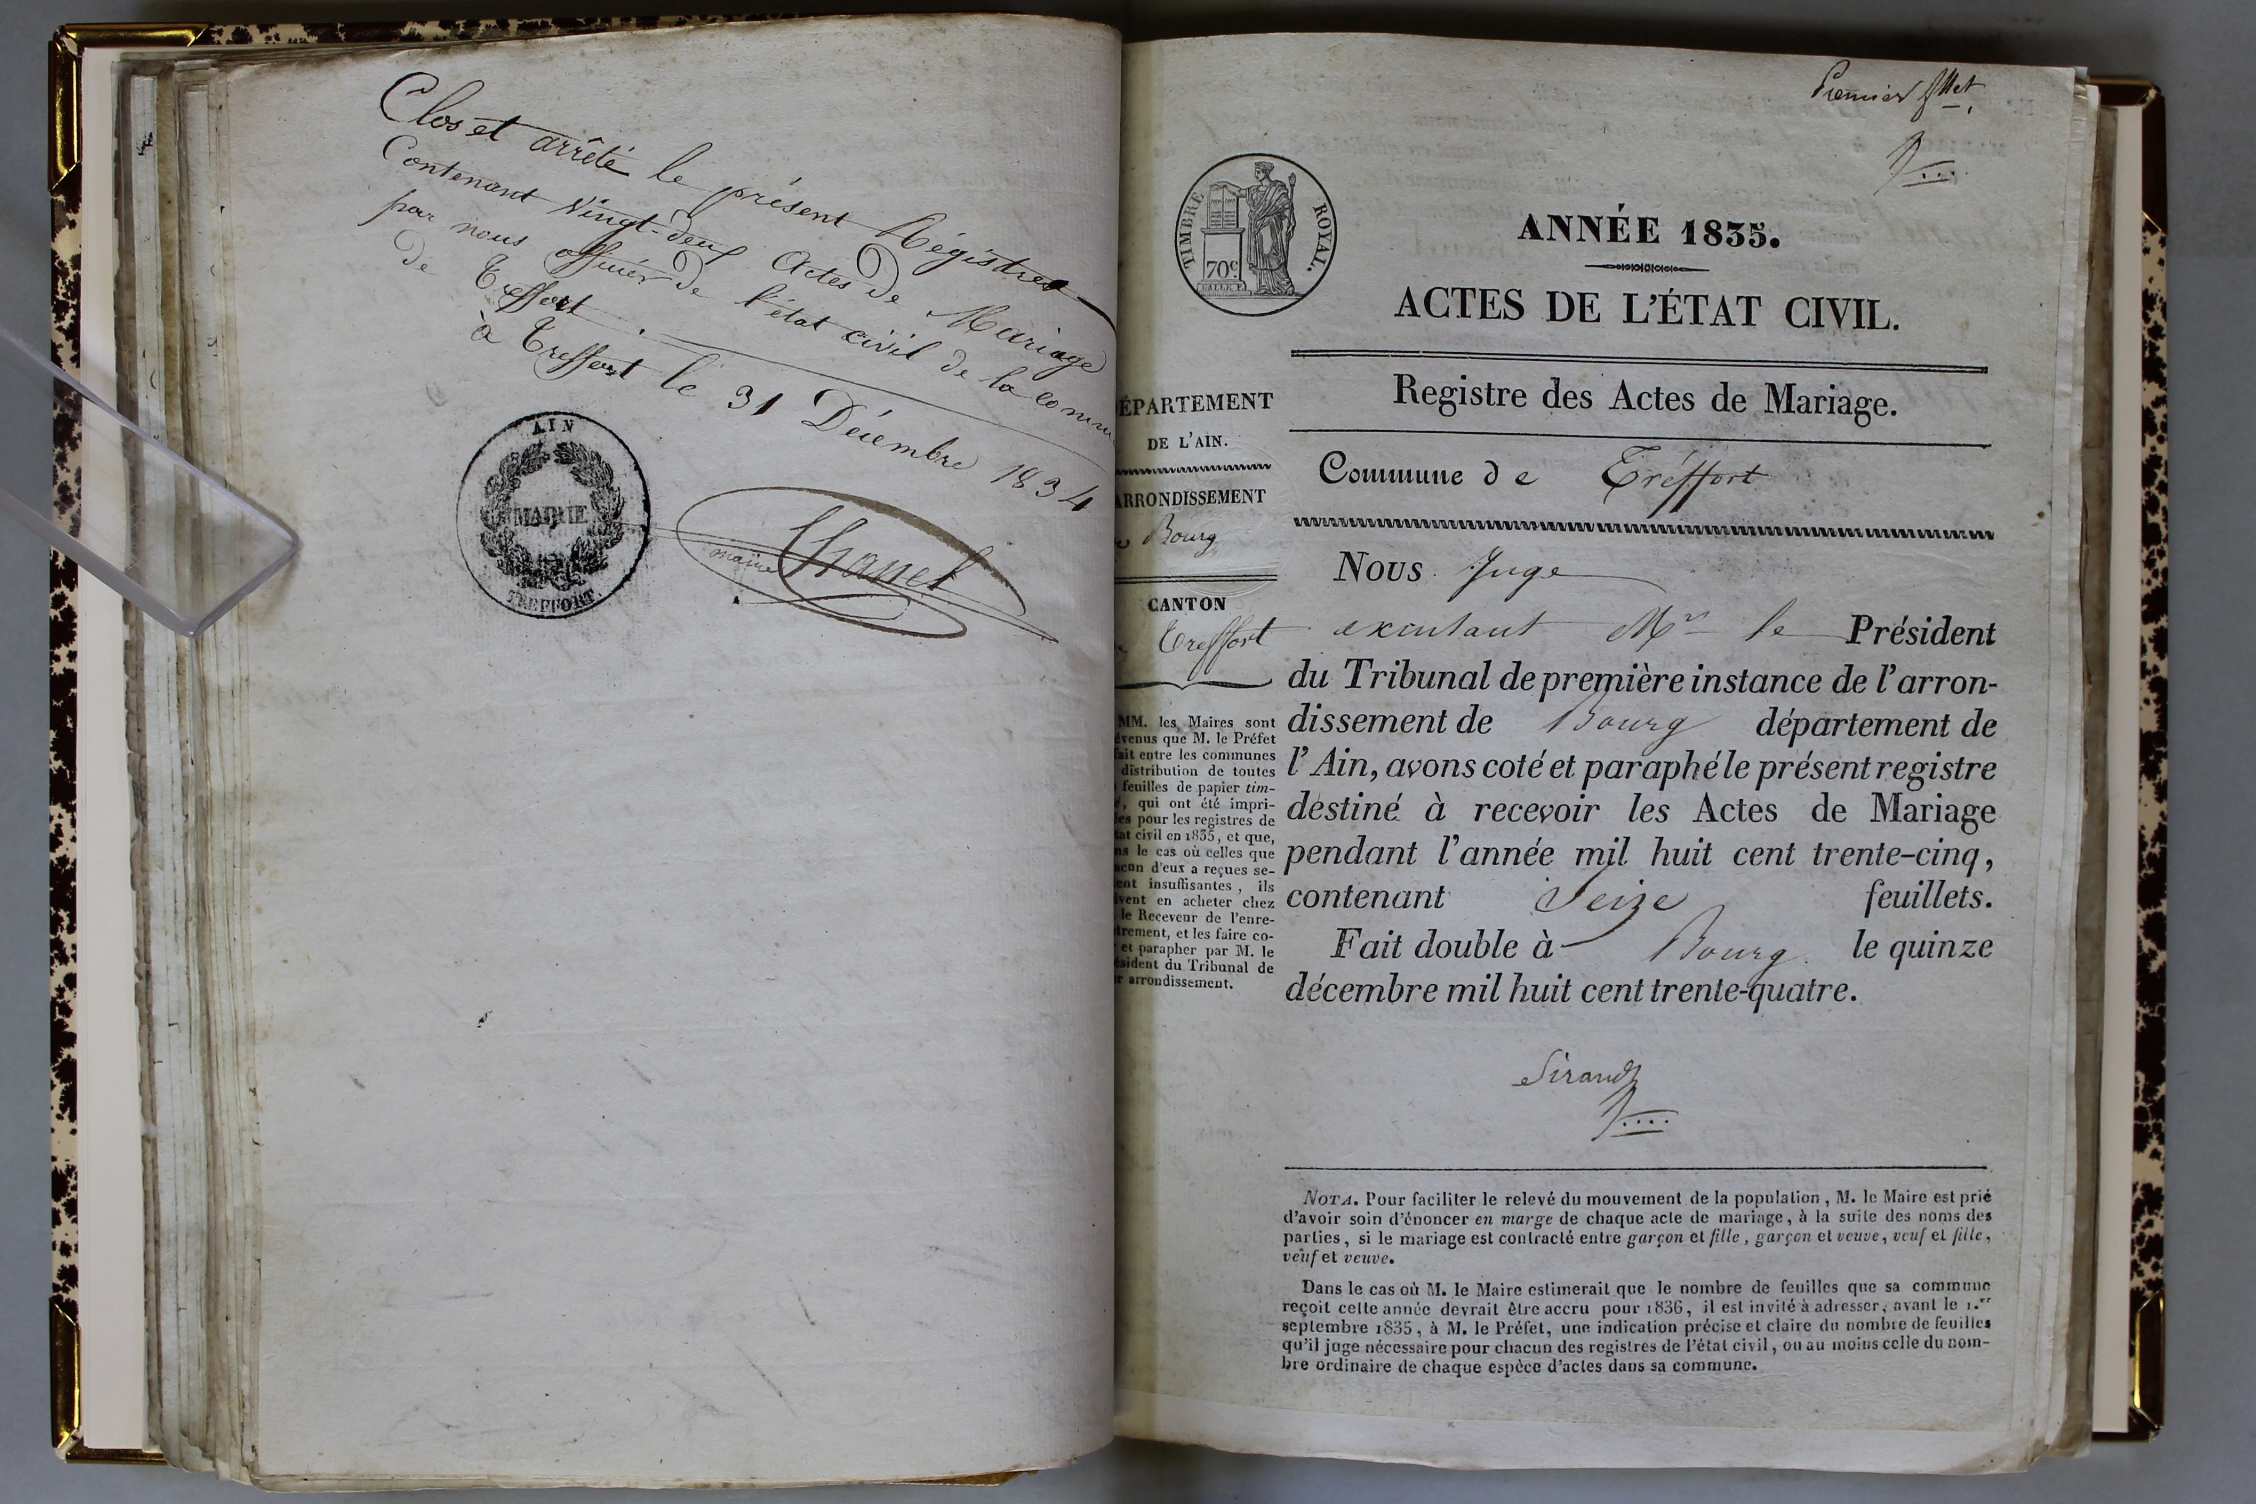 Clos et arrêté le présent Régistres
Contenant Vingt-deux Actes de Mariage
par nous officier de l'état civil de la commu
de Treffort.
à Treffort le 31 Décembre 1834
AIN
MAIRIE
TREFFORT.
maire Chanel
Premier fllet.
TIMBRE ROYAL.
70c
ANNÉE 1835.
ACTES DE L'ÉTAT CIVIL.
Registre des Actes de Mariage.
Commune de Tréffort
ÉPARTEMENT
DE L'AIN.
ARRONDISSEMENT
Bourg
CANTON
Treffort
MM. les Maires sont
évenus que M. le Préfet
fait entre les communes
distribution de toutes
feuilles de papier tim-
, qui ont été impri-
es pour les registres de
tat civil en 1835, et que,
ns le cas où celles que
acun d'eux a reçues se-
ent insuffisantes, ils
ivent en acheter chez
le Receveur de l'enre-
trement, et les faire co-
et parapher par M. le
ésident du Tribunal de
r arrondissement.
Nous Juge
exculant Mr le Président
du Tribunal de première instance de l'arron-
dissement de Bourg département de
l'Ain, avons coté et paraphé le présent registre
destiné à recevoir les Actes de Mariage
pendant l'année mil huit cent trente-cinq,
contenant Seize feuillets.
Fait double à Bourg le quinze
décembre mil huit cent trente-quatre.
Sirand
NOTA. Pour faciliter le relevé du mouvement de la population, M. le Maire est prié
d'avoir soin d'énoncer en marge de chaque acte de mariage, à la suite des noms des
parties, si le mariage est contracté entre garçon et fille, garçon et veuve, veuf et fille,
veuf et veuve.
Dans le cas où M. le Maire estimerait que le nombre de feuilles que sa commune
reçoit cette année devrait être accru pour 1836, il est invité à adresser, avant le 1.er
septembre 1835, à M. le Préfet, une indication précise et claire du nombre de feuilles
qu'il juge nécessaire pour chacun des registres de l'état civil, ou au moins celle du nom-
bre ordinaire de chaque espèce d'actes dans sa commune.